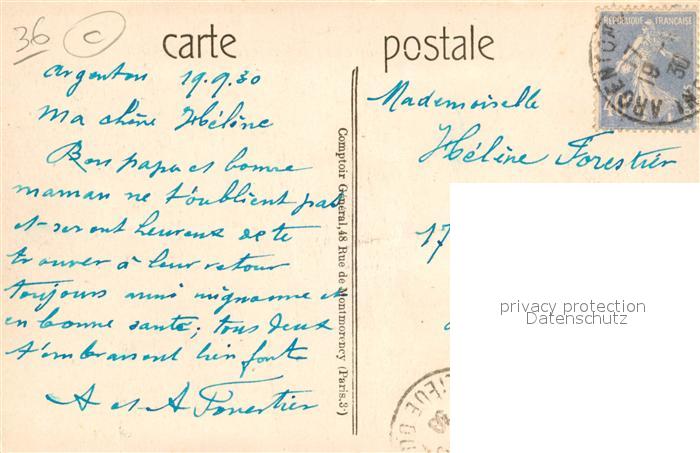 36 C
carte postale
REPUBLIQUE FRANÇAISE
Argenton 19.9.30
Ma chère Hélène
Bon papa et bonne
maman ne t'oublient pas
et seront heureux de te
trouver à leur retour
toujours aussi mignonne et
en bonne santé; tous deux
t'embrassent bien fort
A et A Forestier
Comptoir Général, 48 Rue de Montmorency (Paris.3ᵉ)
Mademoiselle
Hélène Forestier
17
privacy protection
Datenschutz